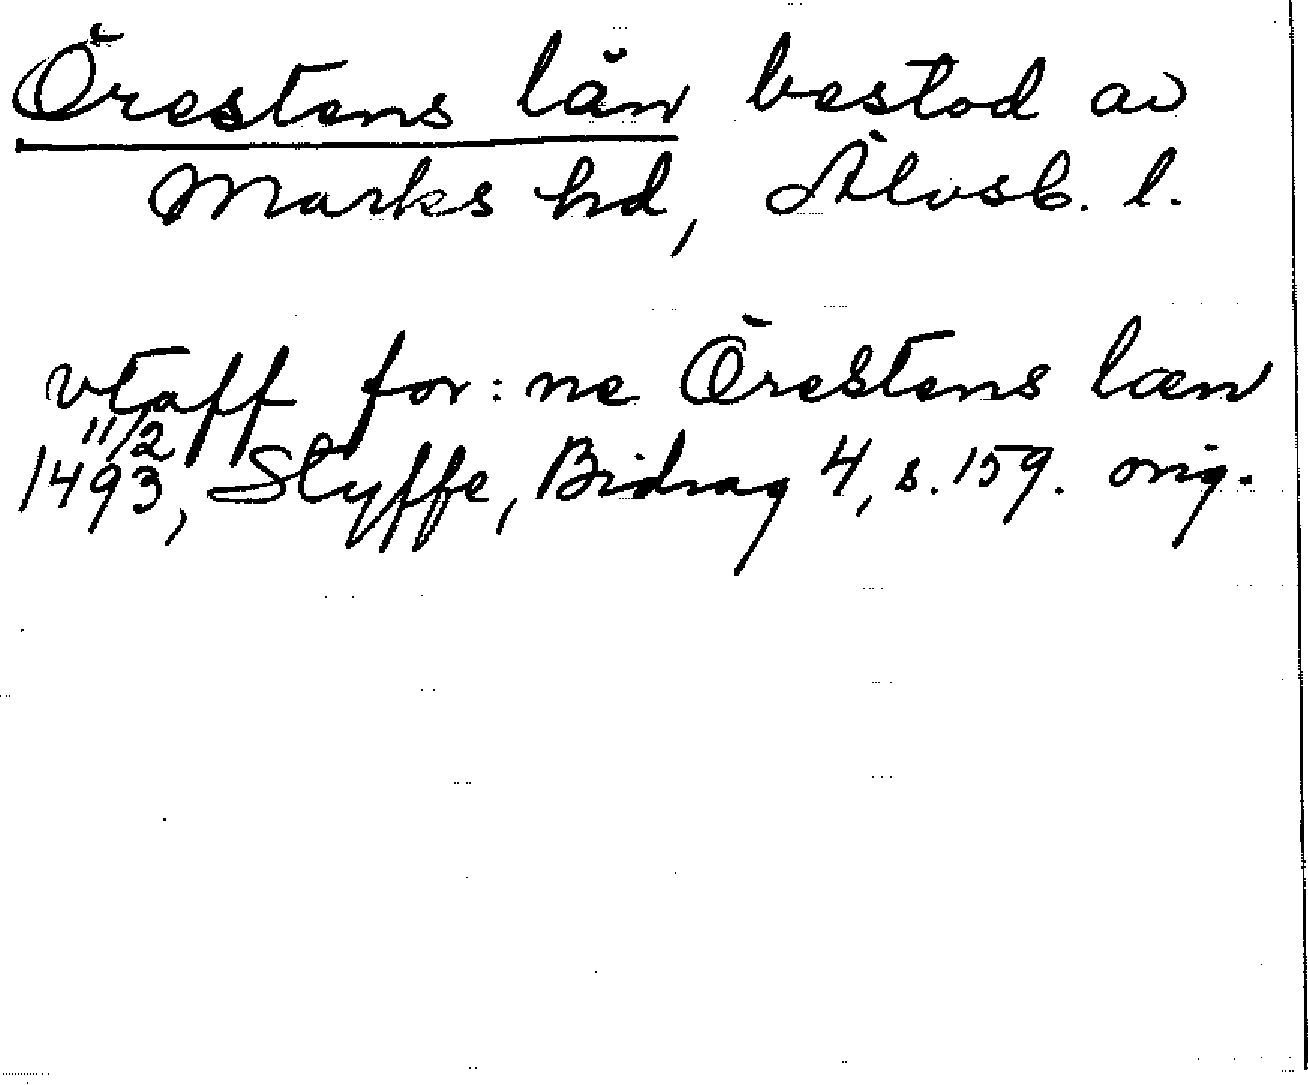 Örestens län bestod av
Marks hd, Älvsb. l.
vtaff for:ne Örestens læn
11/2
1493, Styffe, Bidrag 4, s. 159. orig.